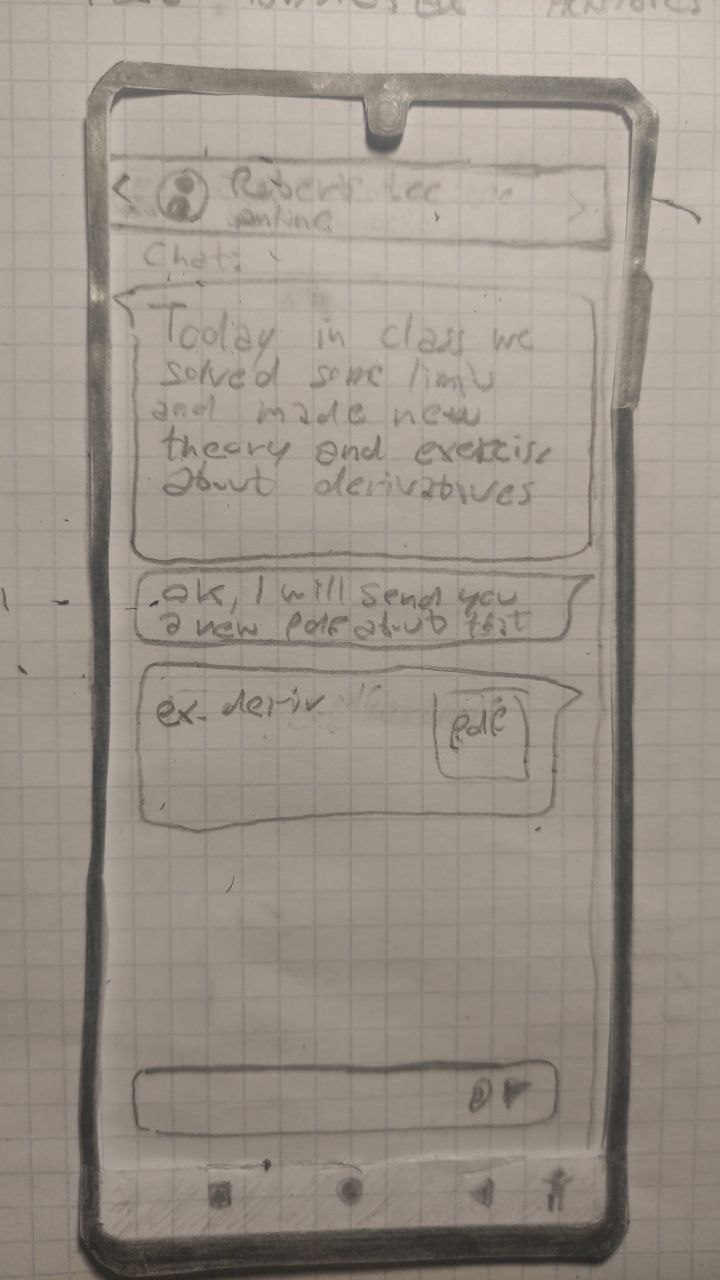 Roberts Lee
online
Chat:
Today in class we
solved some limits
and made new
theory and exercise
about derivatives
ok, I will send you
a new pdf about that
ex-deriv
pdf